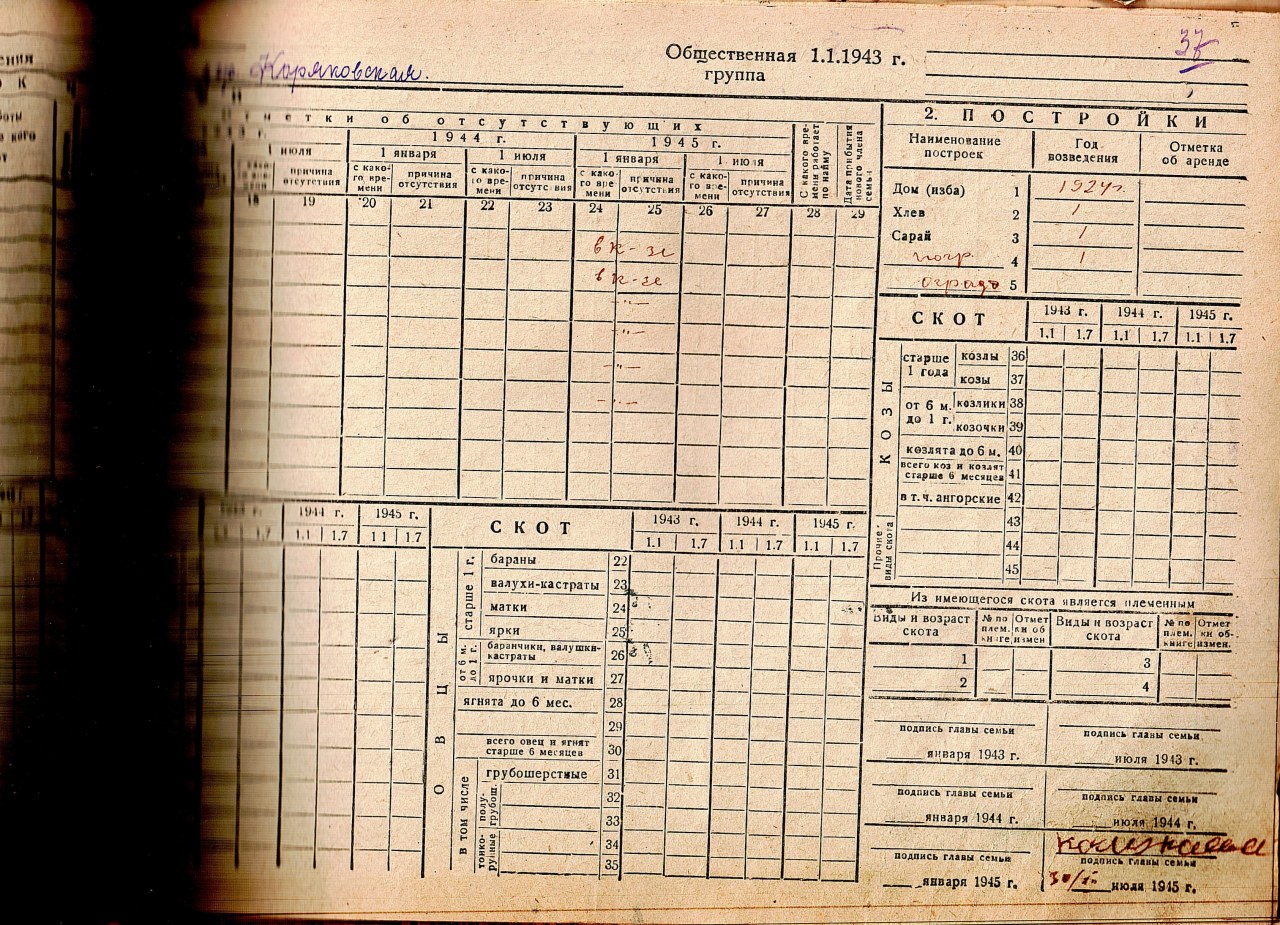 Коряковская.
Общественная 1.1.1943 г.
группа
37
об отсутствующих
1944 г. 1945 г.
1 июля 1 января 1 июля 1 января 1 июля
причина отсутствия с како-го вре-мени причина отсутствия с како-го вре-мени причина отсутствия с како-го вре мени причина отсутствия с како-го вре-мени причина отсутствия С какого вре-мени работает по найму Дата прибытия нового члена семьи
18 19 20 21 22 23 24 25 26 27 28 29
в к-зе
в к-зе
-"-
-"-
-"-
-"-
2. ПОСТРОЙКИ
Наименование построек Год возведения Отметка об аренде
Дом (изба) 1 1924 г.
Хлев 2 1
Сарай 3 1
погр. 4 1
ограда 5
СКОТ 1943 г. 1944 г. 1945 г.
1.1 1.7 1.1 1.7 1.1 1.7
КОЗЫ
старше 1 года козлы 36
козы 37
от 6 м. до 1 г. козлики 38
козочки 39
козлята до 6 м. 40
всего коз и козлят старше 6 месяцев 41
в т. ч. ангорские 42
Прочие виды скота 43
44
45
Из имеющегося скота является племенным
Виды и возраст скота № по плем. книге Отмет ки об измен Виды и возраст скота № по плем. книге Отмет ки об-измен.
1 3
2 4
подпись главы семьи подпись главы семьи
января 1943 г. июля 1943 г.
подпись главы семьи подпись главы семьи
января 1944 г. июля 1944 г.
подпись главы семьи подпись главы семьи
января 1945 г. июля 1945 г.
1944 г. 1945 г.
1.7 1.1 1.7 1 1 1.7
СКОТ 1943 г. 1944 г. 1945 г.
1.1 1.7 1.1 1.7 1.1 1.7
ОВЦЫ
старше 1 г. бараны 22
валухи-кастраты 23
матки 24
ярки 25
от 6 м. до 1 г. баранчики, валушки-кастраты 26
ярочки и матки 27
ягнята до 6 мес. 28
29
всего овец и ягнят старше 6 месяцев 30
в том числе грубошерстные 31
полу-грубош. 32
33
тонко-рунные 34
35